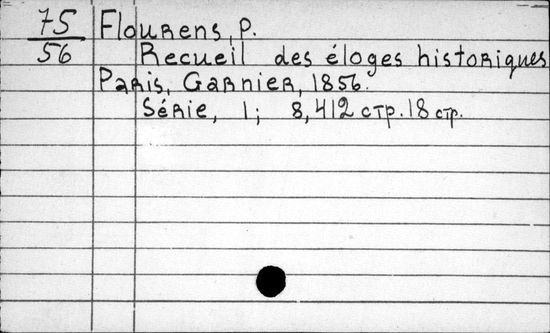 75 Flourens, P.
56 Recueil des éloges historiques
Paris, Garnier, 1856.
Série, 1; 8, 412 стр. 18 стр.